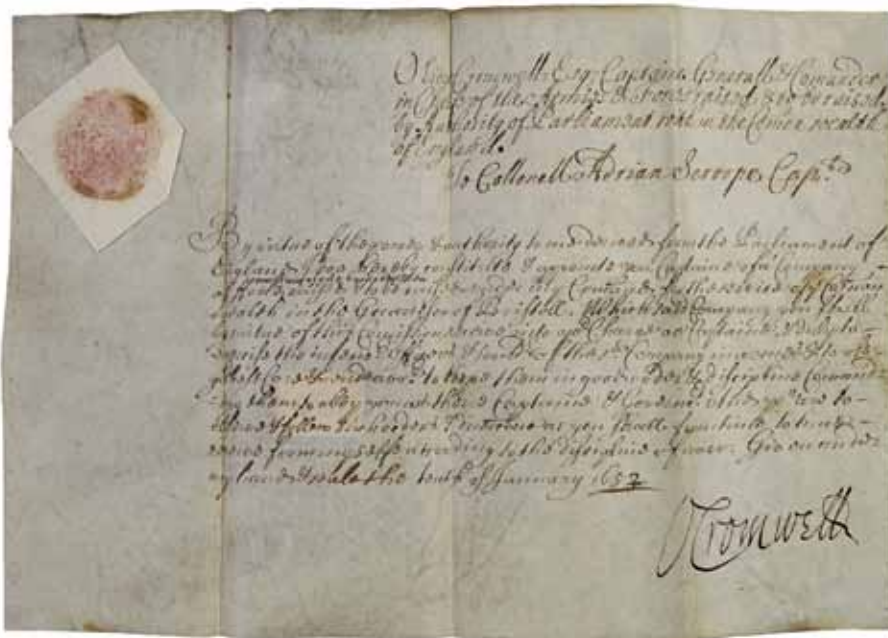 Oliver Cromwell Esq. Captaine Generall & Comander
in Cheife of the Armies & Forces raised & to be raised
by Authority of Parliament within the Comon wealth
of England.
To Collonell Adrian Scroope Capt.
By virtue of the power & authority to me derived from the Parliament of
England I doe hereby constitute & appointe you Captaine of a Company
of foote for the service of ye Comon
wealth in the Garrison of Bristoll. Which said Company you shall
by virtue of this Comission receive into yor Charge as Captaine, & duly to
exercise the inferior officers & souldiers of the sd. Company in armes & to use
yor best Care & endeavor to keepe them in good order & discipline Comand-
ing them to obey you as theire Captaine
observe & follow such orders & directions as you shall from time to time re-
ceive from my selfe according to the discipline of warr. Given under
my hand & seale the tenth of January 1652
OCromwell